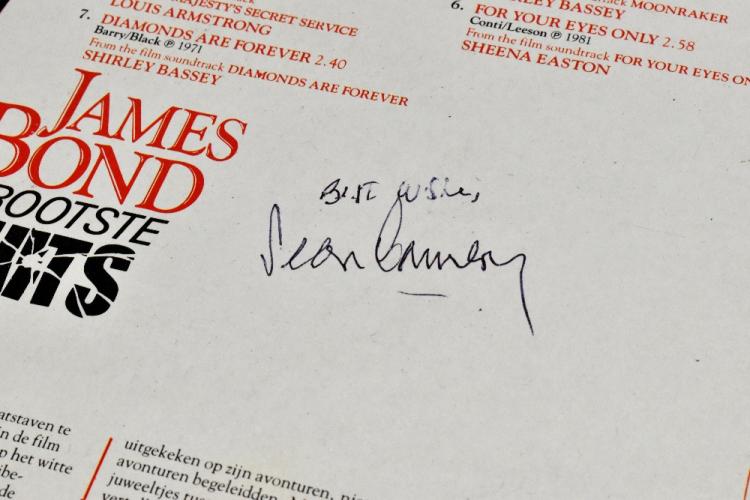 MAJESTY'S SECRET SERVICE
LOUIS ARMSTRONG
7. DIAMONDS ARE FOREVER 2.40
Barry/Black ℗ 1971
From the film soundtrack DIAMONDS ARE FOREVER
SHIRLEY BASSEY
MOONRAKER
BASSEY
6. FOR YOUR EYES ONLY 2.58
Conti/Leeson ℗ 1981
From the film soundtrack FOR YOUR EYES ON
SHEENA EASTON
JAMES
BOND
ROOTSTE
HITS
Best wishes
Sean Connery
atstaven te
in de film
p het witte
ibe-
de
uitgekeken op zijn avonturen,
avonturen begeleidden.
juweeltjes